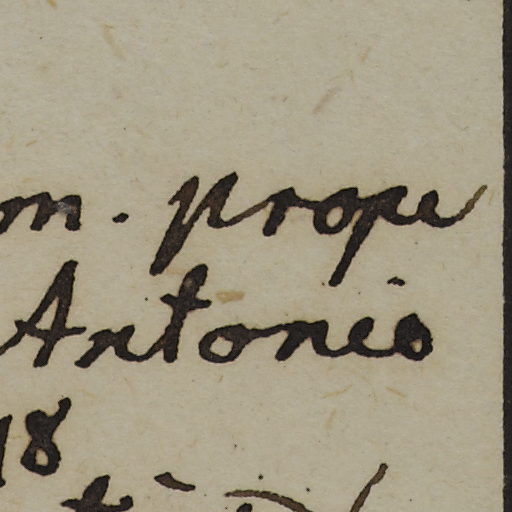 on. prope
Antonio
18